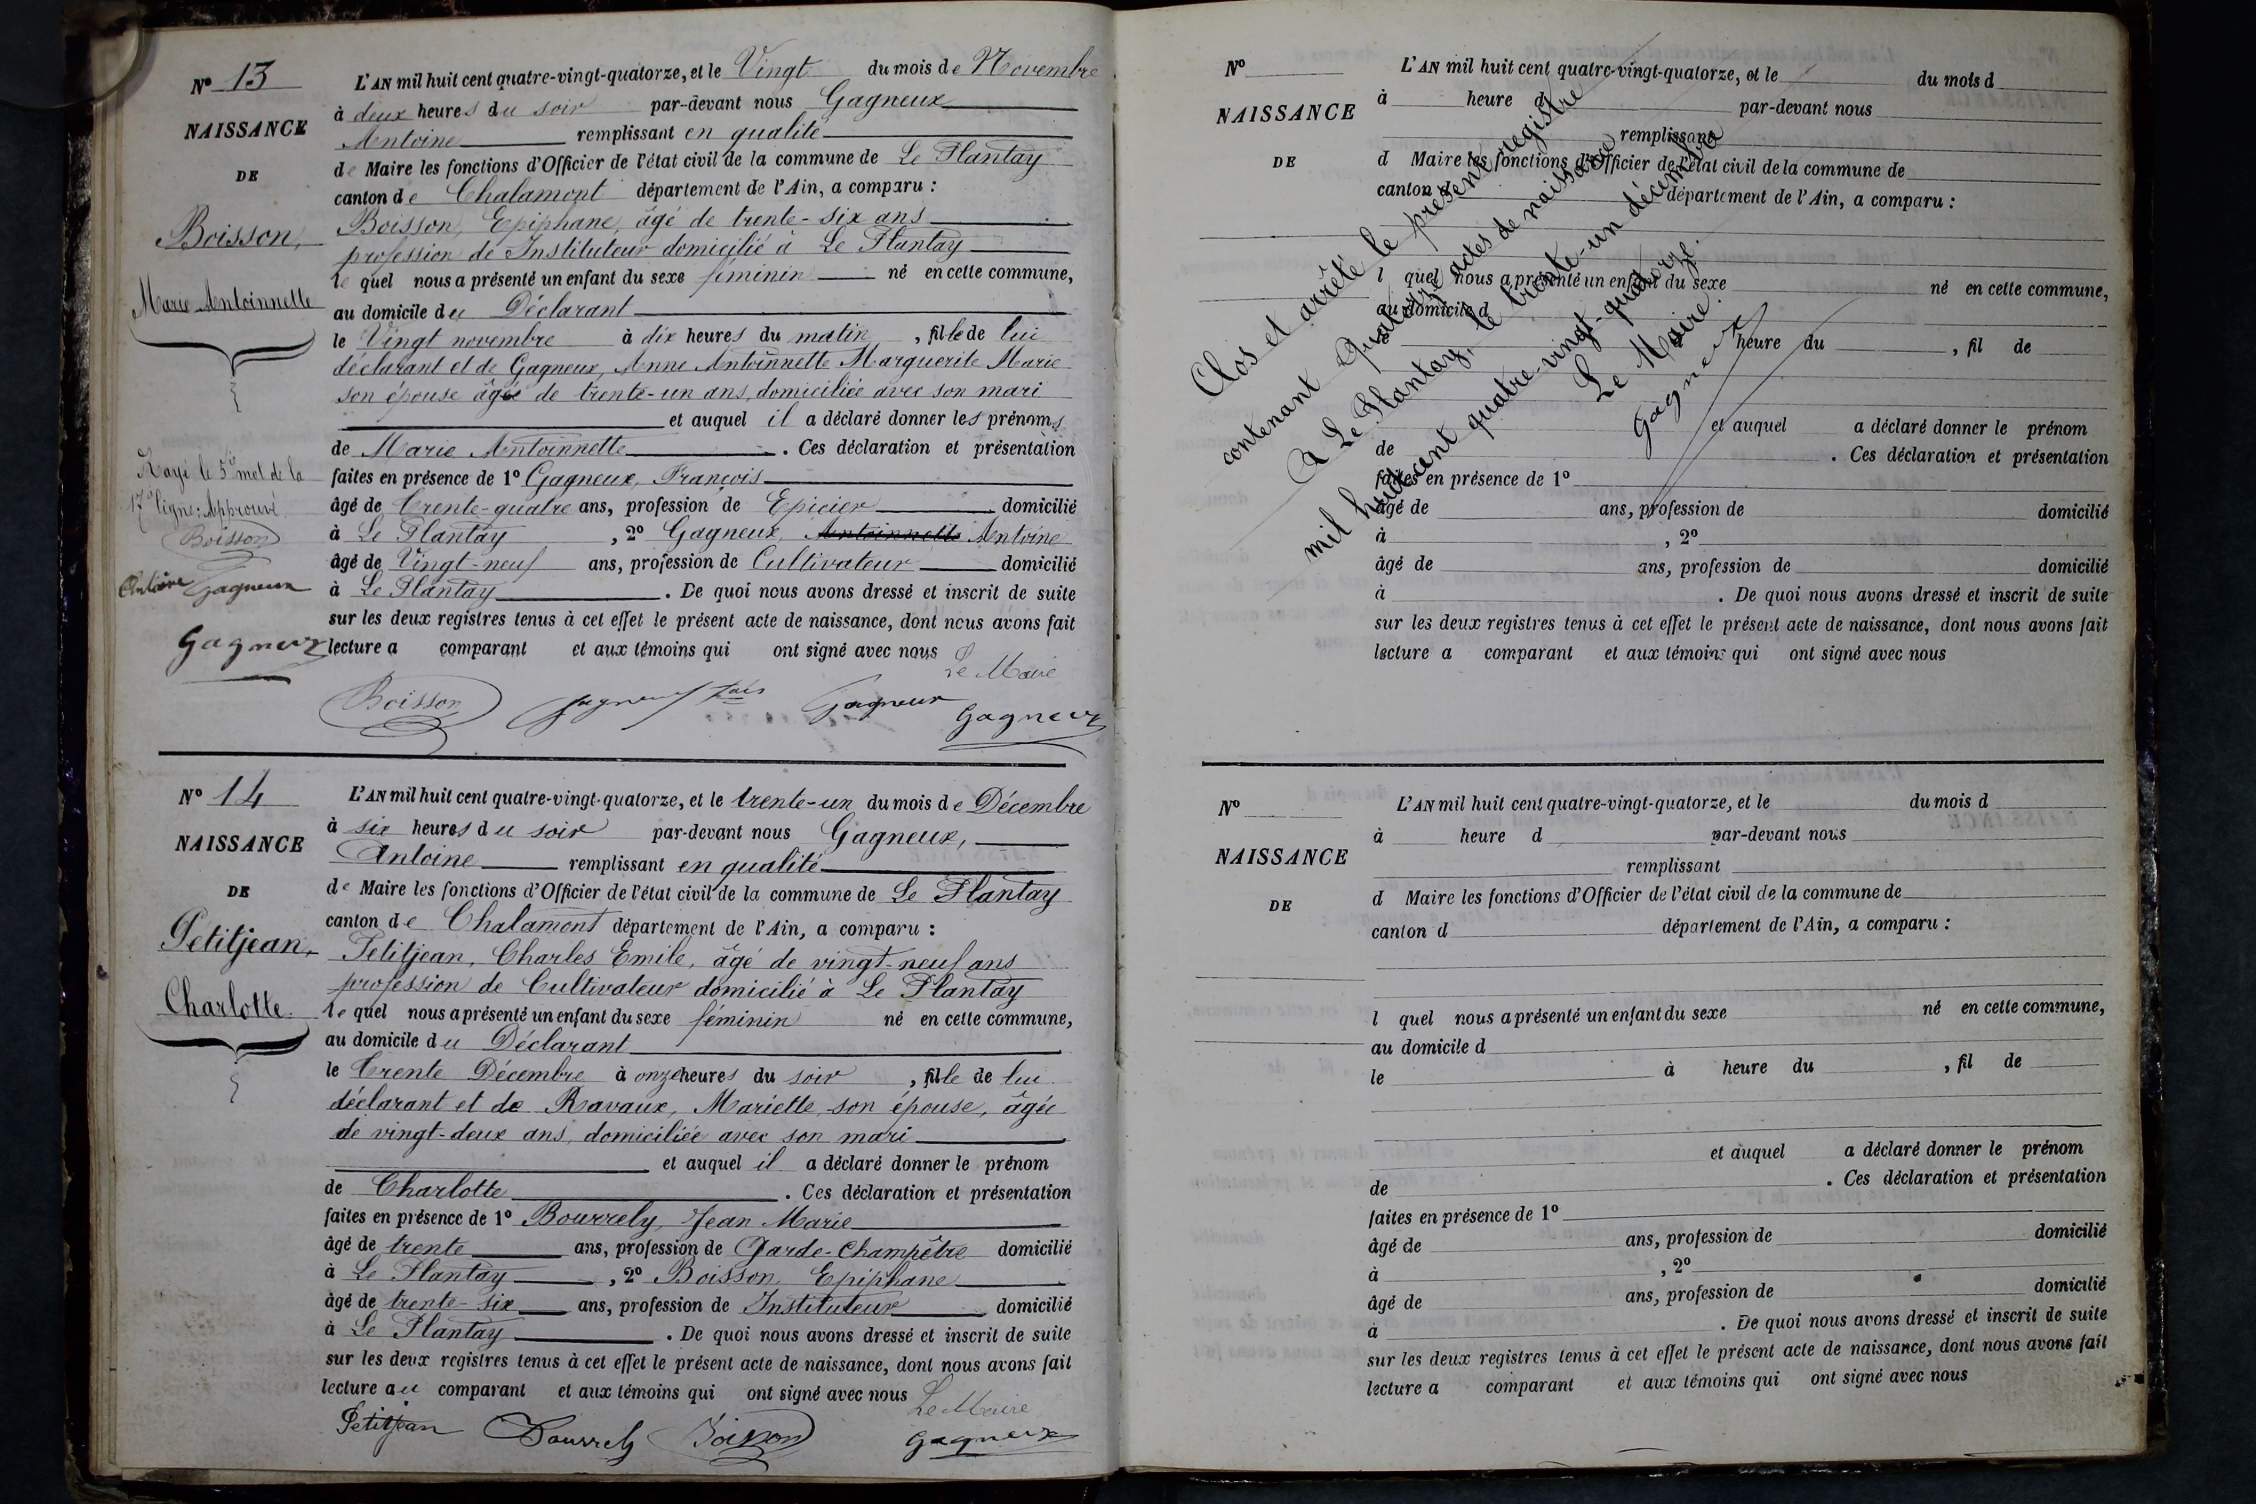 N° 13
NAISSANCE
DE
Boisson,
Marie Antoinnette
Rayé le 5e mot de la
17e ligne: Approuvé
Boisson
Antoine Gagneux
Gagneux
L'AN mil huit cent quatre-vingt-quatorze, et le Vingt du mois de Novembre
à deux heures du soir par-devant nous Gagneux
Antoine remplissant en qualité
de Maire les fonctions d'Officier de l'état civil de la commune de Le Plantay
canton de Chalamont département de l'Ain, a comparu :
Boisson, Epiphane, âgé de trente-six ans
profession de Instituteur domicilié à Le Plantay
lequel nous a présenté un enfant du sexe féminin né en cette commune,
au domicile du Déclarant
le Vingt novembre à dix heures du matin, fille de lui
déclarant et de Gagneux, Anne Antoinnette Marguerite Marie
son épouse âgée de trente-un ans, domiciliée avec son mari
et auquel il a déclaré donner les prénoms
de Marie Antoinnette. Ces déclaration et présentation
faites en présence de 1° Gagneux, François
âgé de trente-quatre ans, profession de Epicier domicilié
à Le Plantay, 2° Gagneux, Antoinnette Antoine
âgé de Vingt-neuf ans, profession de Cultivateur domicilié
à Le Plantay. De quoi nous avons dressé et inscrit de suite
sur les deux registres tenus à cet effet le présent acte de naissance, dont nous avons fait
lecture a comparant et aux témoins qui ont signé avec nous
Le Maire
Boisson Gagneux fçois Gagneux Gagneux
N° 14
NAISSANCE
DE
Petitjean,
Charlotte
L'AN mil huit cent quatre-vingt-quatorze, et le trente-un du mois de Décembre
à six heures du soir par-devant nous Gagneux,
Antoine remplissant en qualité
de Maire les fonctions d'Officier de l'état civil de la commune de Le Plantay
canton de Chalamont département de l'Ain, a comparu :
Petitjean, Charles Emile, âgé de vingt-neuf ans
profession de Cultivateur domicilié à Le Plantay
lequel nous a présenté un enfant du sexe féminin né en cette commune,
au domicile du Déclarant
le trente Décembre à onze heures du soir, fille de lui
déclarant et de Ravaux, Mariette son épouse, âgée
de vingt-deux ans, domiciliée avec son mari
et auquel il a déclaré donner le prénom
de Charlotte. Ces déclaration et présentation
faites en présence de 1° Bourrely, Jean Marie
âgé de trente ans, profession de Garde-Champêtre domicilié
à Le Plantay, 2° Boisson Epiphane
âgé de trente-six ans, profession de Instituteur domicilié
à Le Plantay. De quoi nous avons dressé et inscrit de suite
sur les deux registres tenus à cet effet le présent acte de naissance, dont nous avons fait
lecture au comparant et aux témoins qui ont signé avec nous
Le Maire
Petitjean Bourrely Boisson Gagneux
N°
NAISSANCE
DE
L'AN mil huit cent quatre-vingt-quatorze, et le du mois d
à heure d par-devant nous
remplissant
d Maire les fonctions d'Officier de l'état civil de la commune de
canton d département de l'Ain, a comparu :
l quel nous a présenté un enfant du sexe né en cette commune,
au domicile d
heure du , fil de
et auquel a déclaré donner le prénom
de . Ces déclaration et présentation
faites en présence de 1°
âgé de ans, profession de domicilié
à , 2°
âgé de ans, profession de domicilié
à . De quoi nous avons dressé et inscrit de suite
sur les deux registres tenus à cet effet le présent acte de naissance, dont nous avons fait
lecture a comparant et aux témoins qui ont signé avec nous
Clos et arrêté le présent registre
contenant Quatorze actes de naissance
A Le Plantay, le trente-un décembre
mil huit cent quatre-vingt-quatorze.
Le Maire.
Gagneux
N°
NAISSANCE
DE
L'AN mil huit cent quatre-vingt-quatorze, et le du mois d
à heure d par-devant nous
remplissant
d Maire les fonctions d'Officier de l'état civil de la commune de
canton d département de l'Ain, a comparu :
l quel nous a présenté un enfant du sexe né en cette commune,
au domicile d
le à heure du , fil de
et auquel a déclaré donner le prénom
de . Ces déclaration et présentation
faites en présence de 1°
âgé de ans, profession de domicilié
à , 2°
âgé de ans, profession de domicilié
à . De quoi nous avons dressé et inscrit de suite
sur les deux registres tenus à cet effet le présent acte de naissance, dont nous avons fait
lecture a comparant et aux témoins qui ont signé avec nous